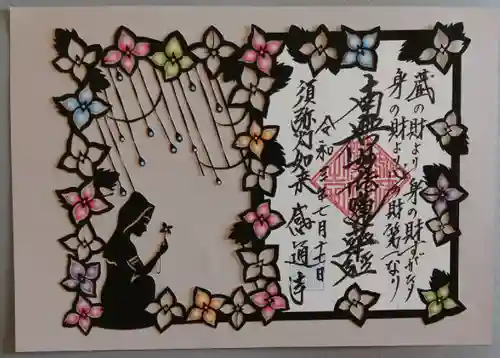 蔵の財より身の財すぐれたり
身の財より心の財第一なり
南無妙法蓮華経
令和三年七月十一日
須弥灯如来 感通寺